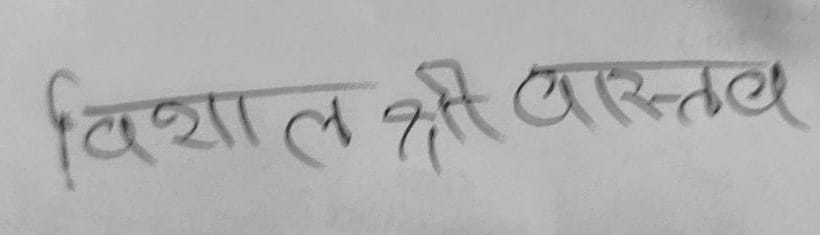 विशाल श्रीवास्तव